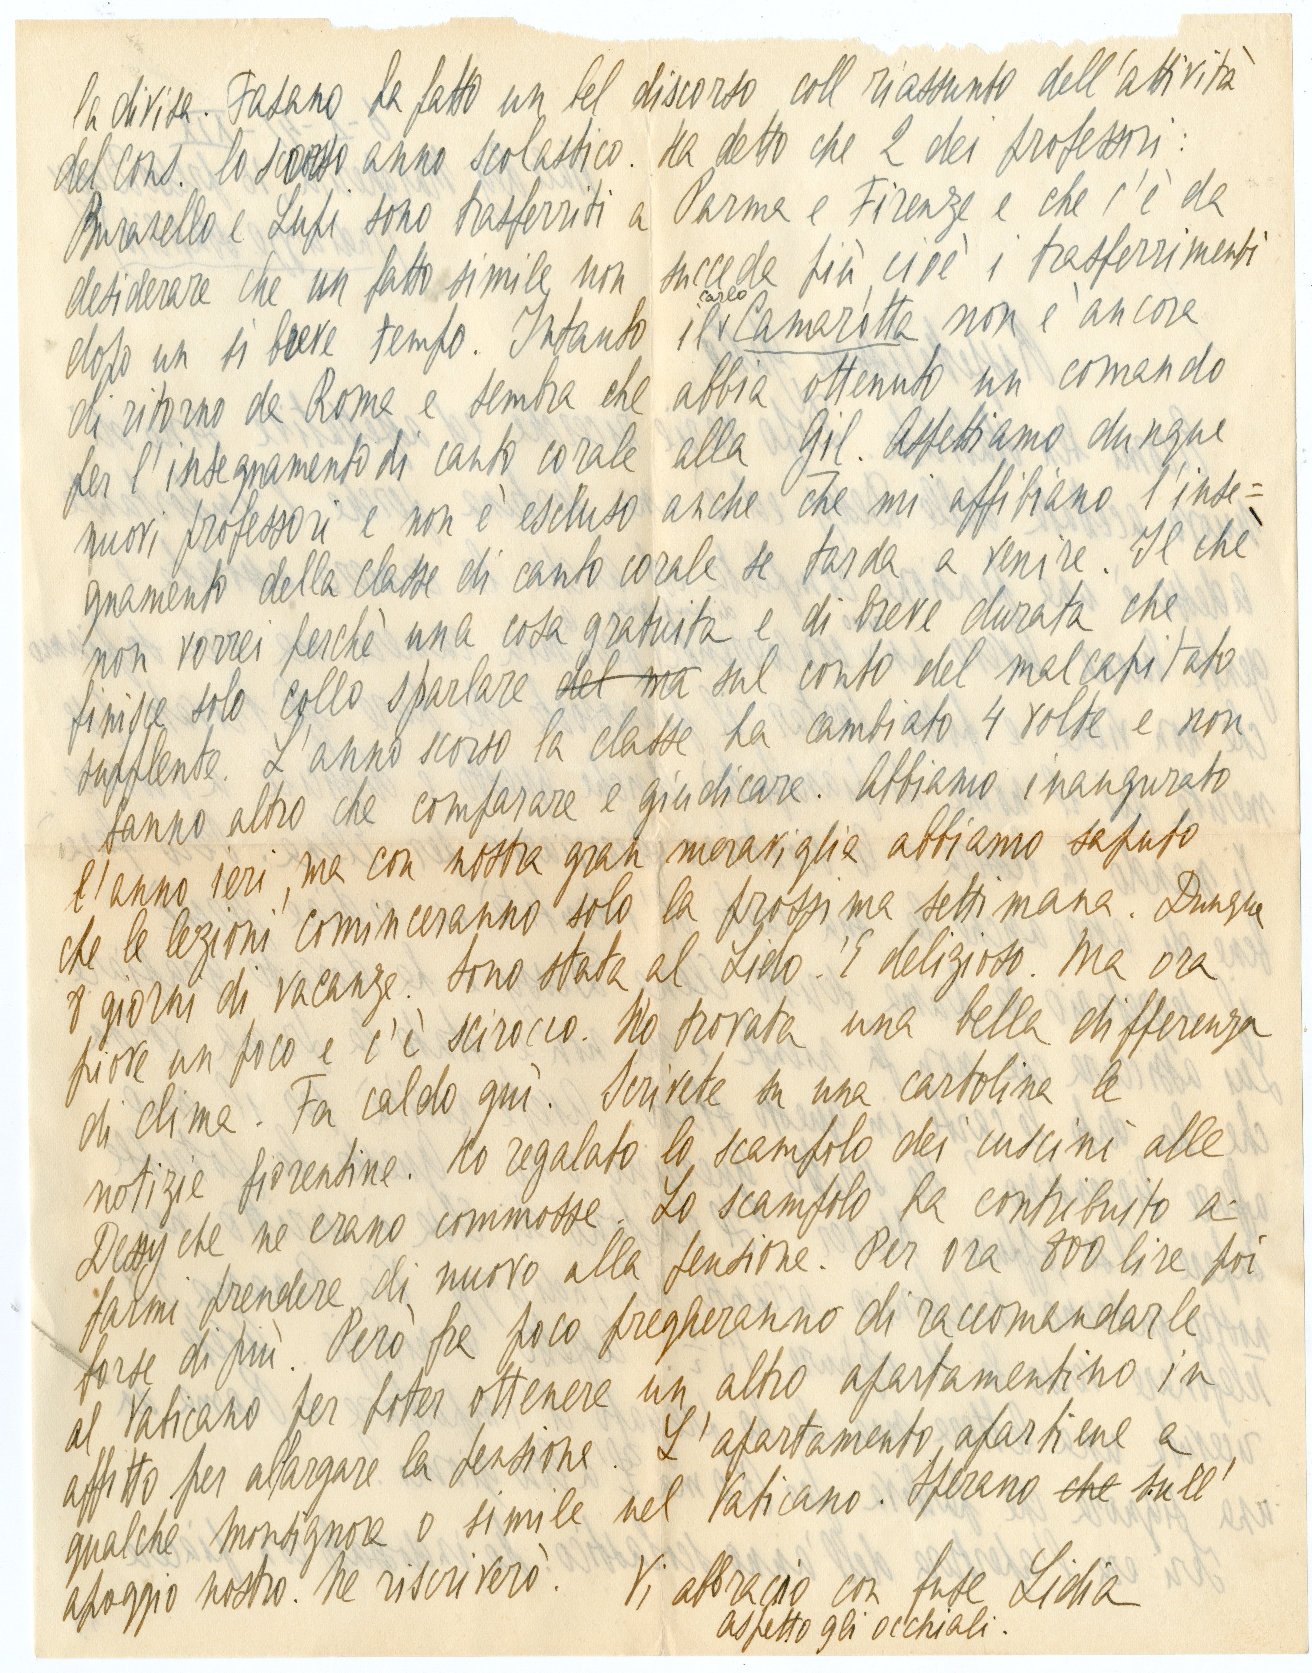 la divisa. Fasano ha fatto un bel discorso coll riassunto dell'attività
del Cons. lo scorso anno scolastico. Ha detto che 2 dei professori:
e Lupi sono trasferriti a Parma e Firenze e che c'è da
desiderare che un fatto simile non succeda più cioè i trasferrimenti
dopo un sì breve tempo. Intanto il carlo Camarotta non è ancora
di ritorno da Roma e sembra che abbia ottenuto un comando
per l'insegnamento di canto corale alla Gil. Aspettiamo dunque
nuovi professori e non è escluso anche che mi affibiano l'inse=
gnamento della classe di canto corale se tarda a venire. Il chè
non vorrei perchè una cosa gratuita e di breve durata che
finisce solo collo sparlare del ma sul conto del malcapitato
supplente. L'anno scorso la classe ha cambiato 4 volte e non
fanno altro che comparare e giudicare. Abbiamo inaugurato
l'anno ieri, ma con nostra gran meraviglia abbiamo saputo
che le lezioni cominceranno solo la prossima settimana. Dunque
8 giorni di vacanze. Sono stata al Lido. 'E delizioso. Ma ora
piove un poco e c'è scirocco. Ho trovata una bella differenza
di clima. Fa caldo quì. Scrivete su una cartolina le
notizie fiorentine. Ho regalato lo scampolo dei cuscini alle
Dessy che ne erano commosse. Lo scampolo ha contribuito a
farmi prendere di nuovo alla pensione. Per ora 800 lire poi
forse di più. Però fra poco pregheranno di raccomandarle
al Vaticano per poter ottenere un altro apartamentino in
affitto per allargare la pensione. L'apartamento apartiene a
qualche Monsignore o simile nel Vaticano. Sperano che sull'
apoggio nostro. Ne riscriverò. Vi abbracio con Lidia
aspetto gli occhiali.